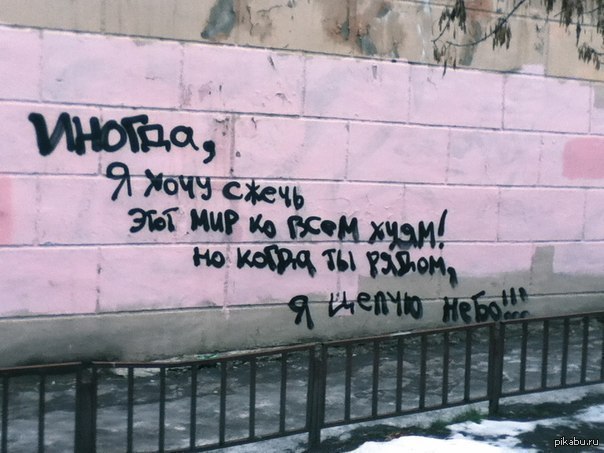 Иногда,
Я хочу сжечь
этот мир ко всем хуям!
но когда ты рядом,
я целую небо!!!
pikabu.ru